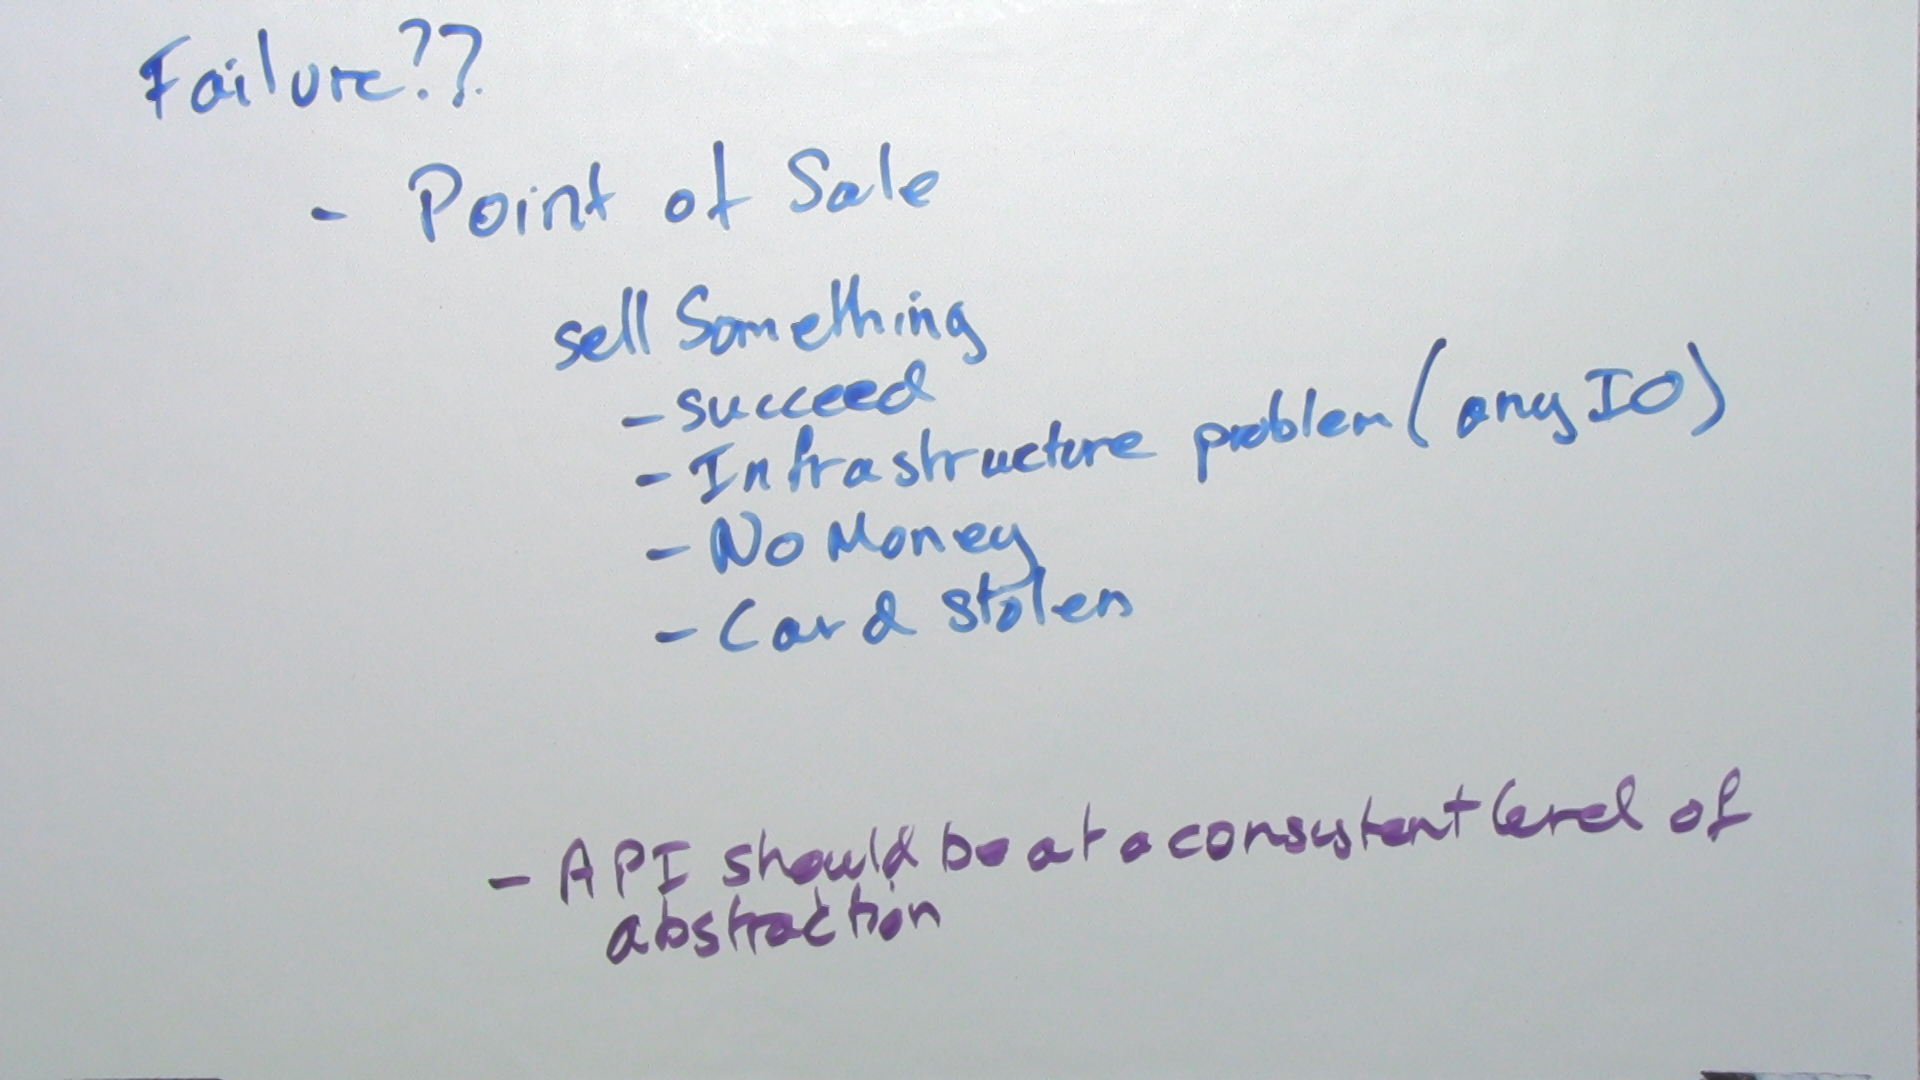 Failure??
- Point of Sale
sell Something
- succeed
- Infrastructure problem (any IO)
- No Money
- Card stolen
- API should be at a consistent level of
abstraction